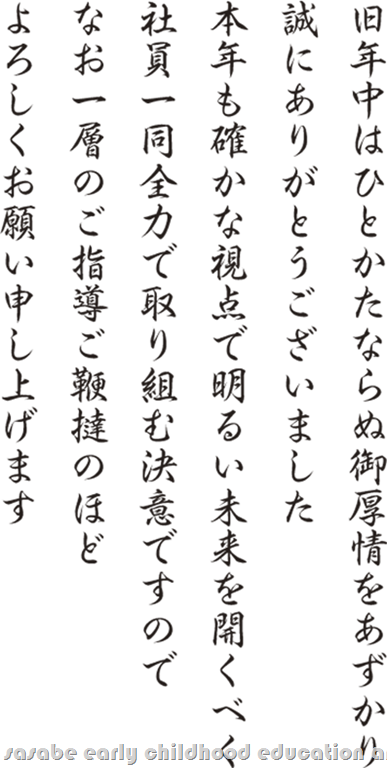 旧年中はひとかたならぬ御厚情をあずかり
誠にありがとうございました
本年も確かな視点で明るい未来を開くべく
社員一同全力で取り組む決意ですので
なお一層のご指導ご鞭撻のほど
よろしくお願い申し上げます
sasabe early childhood education a